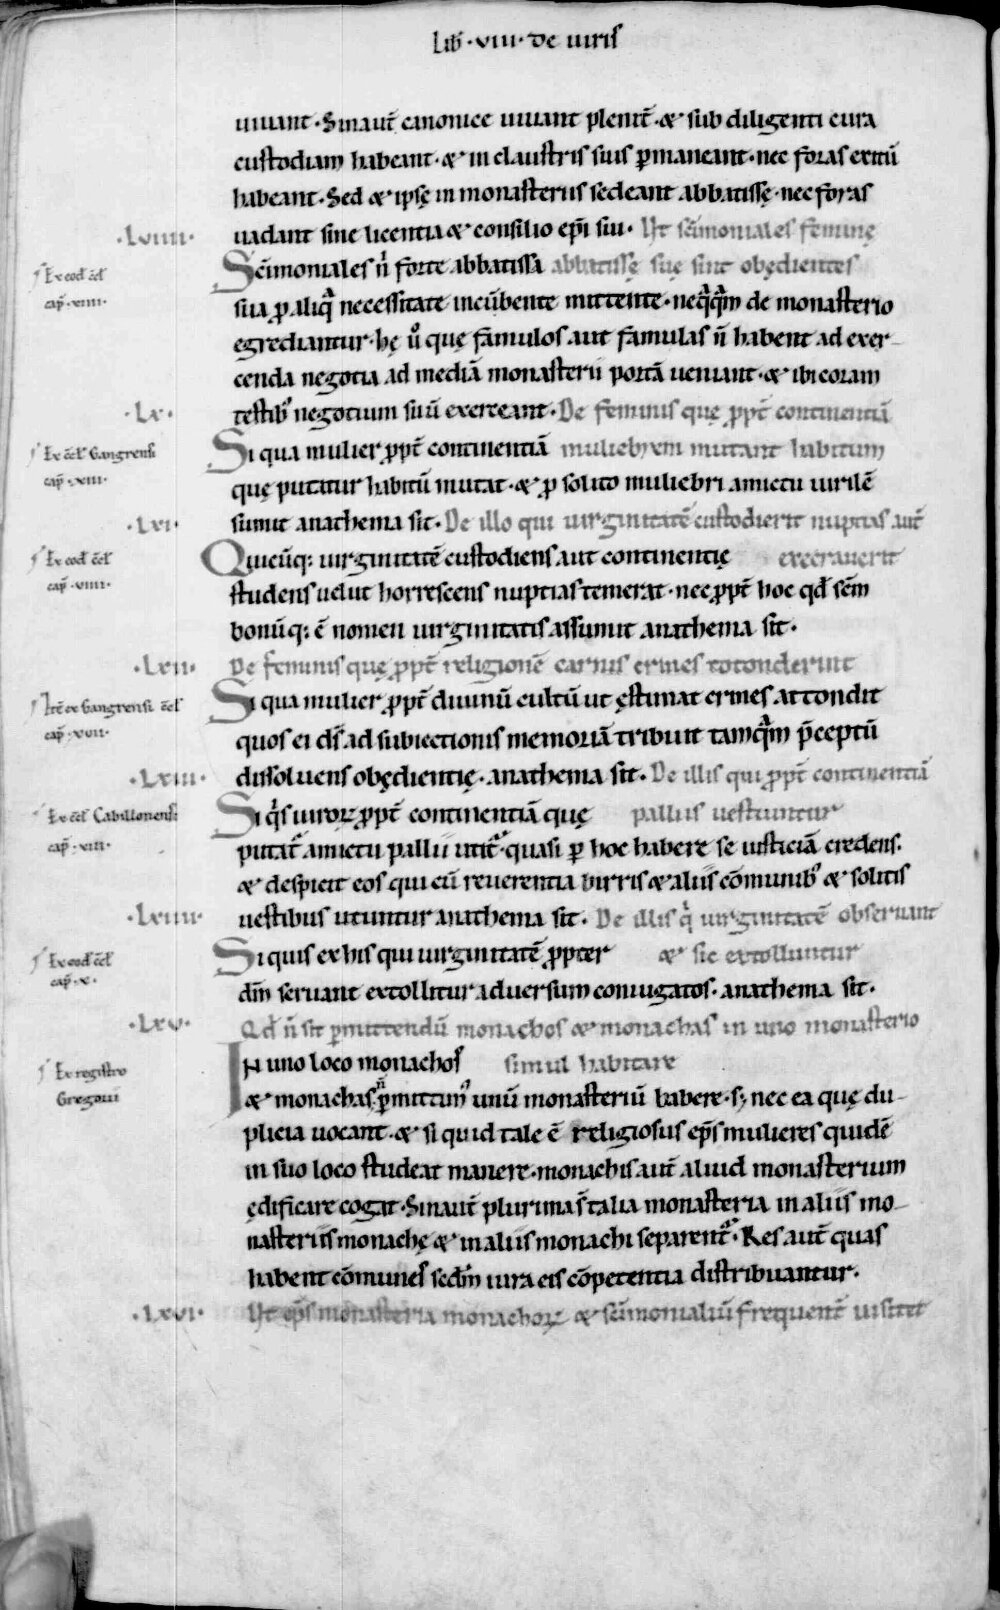 Lib̄ · VIII · De uiris
uiuant · Sinaut̄ canonice uiuant plenit̄ · & sub diligenti cura
custodiam habeant · & in claustris suis p̄maneant · nec foras exitū
habeant · Sed & ipsę in monasteriis sedeant abbatissę · nec foras
· LVIIII · uadant sine licentia & consilio ep̄i sui · Ut sc̄imoniales feminę
Ex eod̄ c̄cl̄ Sc̄imoniales n̄ forte abbatissa abbatissę suę sint obędientes
cap̄ · XIIII · sua p̄ aliq̄ necessitate incūbente mittente · neq̄q̄m de monasterio
egrediantur · hę ū que famulos aut famulas n̄ habent ad exer-
cenda negotia ad mediā monasterii portā ueniant · & ibi coram
· LX · testib; negotium suū exerceant · De feminis quę p̄pt̄ continentiā
Ex c̄cl̄ Gangrensi Si qua mulier p̄pt̄ continentiā muliebrem mutant habitum
cap̄ · XIII · quę putatur habitū mutat · & p̄ solito muliebri amictu uirilē
· LXI · sumit anathema sit · De illo qui uirginitatē custodierit nuptias aut̄
Ex eod̄ c̄cl̄ Quicūq; uirginitatē custodiens aut continentię execrauerit
cap̄ · VIIII · studens uelut horrescens nuptias temerat · nec p̄pt̄ hoc qd̄ sc̄m
bonūq; ē nomen uirginitatis assumit anathema sit ·
· LXII · De feminis quę p̄pt̄ religionē carnis crines totonderint
Itē ex Gangrensi c̄cl̄ Si qua mulier p̄pt̄ diuinū cultū ut ęstimat crines attondit
cap̄ · XVII · quos ei ds̄ ad subiectionis memoriā tribuit tamq̄m p̄ceptū
· LXIII · dissoluens obędientię · anathema sit · De illis qui p̄pt̄ continentiā
Ex c̄cl̄ Cabillonensi Si q̄s uiroꝝ p̄pt̄ continentiā quę palliis uestiuntur
cap̄ · XIII · putat̄ amictu pallii utit̄ · quasi p̄ hoc habere se iusticiā credens ·
& despicit eos qui cū reuerentia birris & aliis cōmunib; & solitis
· LXIIII · uestibus utuntur anathema sit · De illis q̄ uirginitatē obseruant
Ex eod̄ c̄cl̄ Si quis ex his qui uirginitatē p̄pter & sic extolluntur
cap̄ · X · dm̄ seruant extollitur aduersum coniugatos · anathema sit ·
· LXV · Qd̄ n̄ sit p̄mittendū monachos & monachas in uno monasterio
Ex registro In uno loco monachos simul habitare
Gregorii & monachas n̄ p̄mittim; unū monasteriū habere · s; nec ea quę du-
plicia uocant · & si quid tale ē religiosus ep̄s mulieres quidē
in suo loco studeat manere · monachis aut̄ aliud monasterium
ędificare cogat · Sinaut̄ plurima s̄ talia monasteria in aliis mo-
nasteriis monachę & in aliis monachi separent̄ · Res aut̄ quas
habent cōmunes sedm̄ iura eis cōpetentia distribuantur ·
· LXVI · Ut ep̄s monasteria monachoꝝ & sc̄imonialiū frequent̄ uisitet